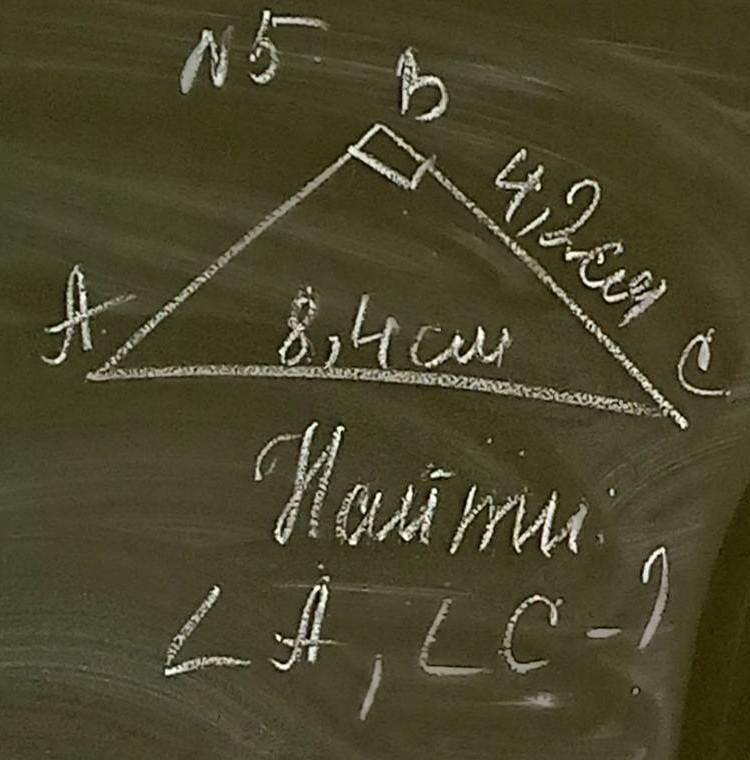 N5
B
4,2см
A
8,4см
C
Найти
∠A, ∠C-?